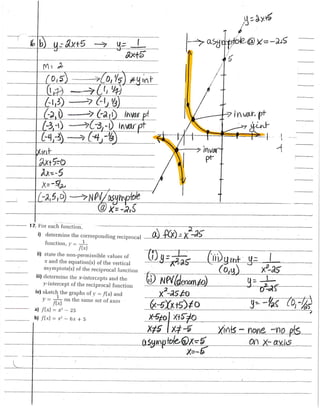 y=2x+5
6. b) y=2x+5 → y= 1/2x+5
→ asymptote @ x=-2.5
5
M: 2
(0,5) → (0,1/5) y int
(1,7) → (1, 1/7)
(-1,3) → (-1, 1/3)
(-2,1) → (-2,1) invar pt
→ invar. pt
(-3,-1) → (-3,-1) invar pt
→ yint
(-4,-3) → (-4,-1/3)
→ invar pt
xint
2x+5=0
2x=-5
x=-5/2
(-2.5,0) → NPV/asymptote
@ x=-2.5
17. For each function,
i) determine the corresponding reciprocal function, y = 1/f(x)
ii) state the non-permissible values of x and the equation(s) of the vertical asymptote(s) of the reciprocal function
iii) determine the x-intercepts and the y-intercept of the reciprocal function
iv) sketch the graphs of y = f(x) and y = 1/f(x) on the same set of axes
a) f(x) = x² − 25
b) f(x) = x² − 6x + 5
a) f(x) = x²-25
(i) y = 1/x²-25
(iii) yint (0,y) y = 1/x²-25
(ii) NPV (denom≠0)
y = 1/0²-25
x²-25≠0
(x-5)(x+5)≠0
y = -1/25 (0,-1/25)
x-5≠0 | x+5≠0
x≠5 | x≠-5
xints - none - no pts on x-axis
asymptote @ x=5
x=-5